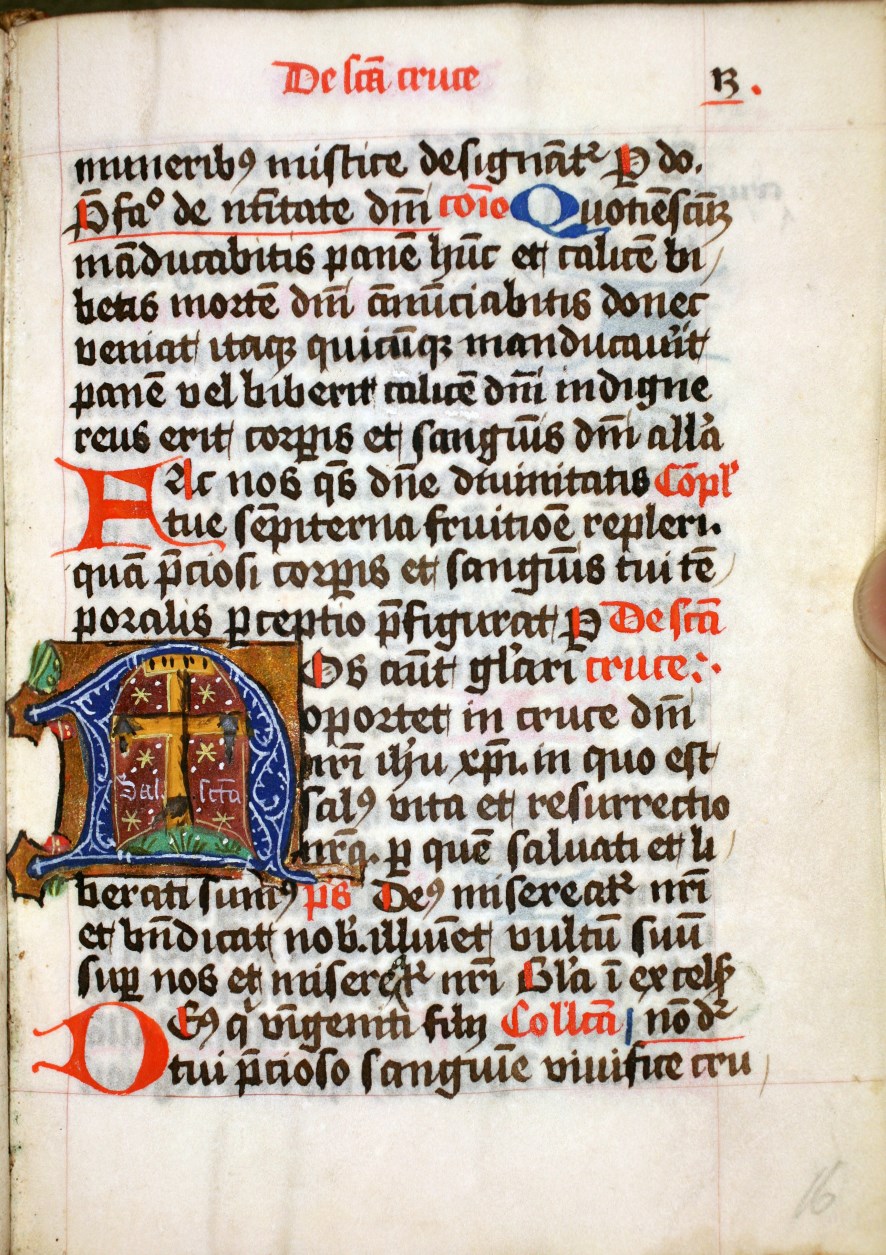 De scā cruce 13.
munerib⁹ mistice designāt᷑ P do.
P̄faᵒ de nr̄itate dn̄i cōio Quotiēscūqꝫ
māducabitis panē hūc et calicē bi
betis mortē dn̄i ānūciabitis donec
veniat itaqꝫ quicūqꝫ manducau᷑it
panē vel biberit calicē dn̄i indigne
reus erit corꝑis et sanguīs dn̄i all̓a
FAc nos q̄s dn̄e diuinitatis Cōpl᷑
tue sēpiterna fruitiōe repleri.
quā p̄ciosi corꝑis et sanguīs tui tē
poralis ꝑceptio p̄figurat P De scā
NOs aūt gl̓ari cruce:.
oportet in cruce dn̄i
nr̄i ih̄u xp̄i. in quo est
sal⁹ vita et resurrectio
nr̄a. ꝑ quē saluati et li
berati sum⁹ p̄s De⁹ misereat᷑ nr̄i
et bn̄dicat nob̓. illuīet vultū suū
suꝑ nos et misereat᷑ nr̄i Gl̓a ī excelsꝭ
DE⁹ qⁱ vnigeniti filij Coll̄cā nō dr᷑
tui p̄cioso sanguīe viuifice cru
16